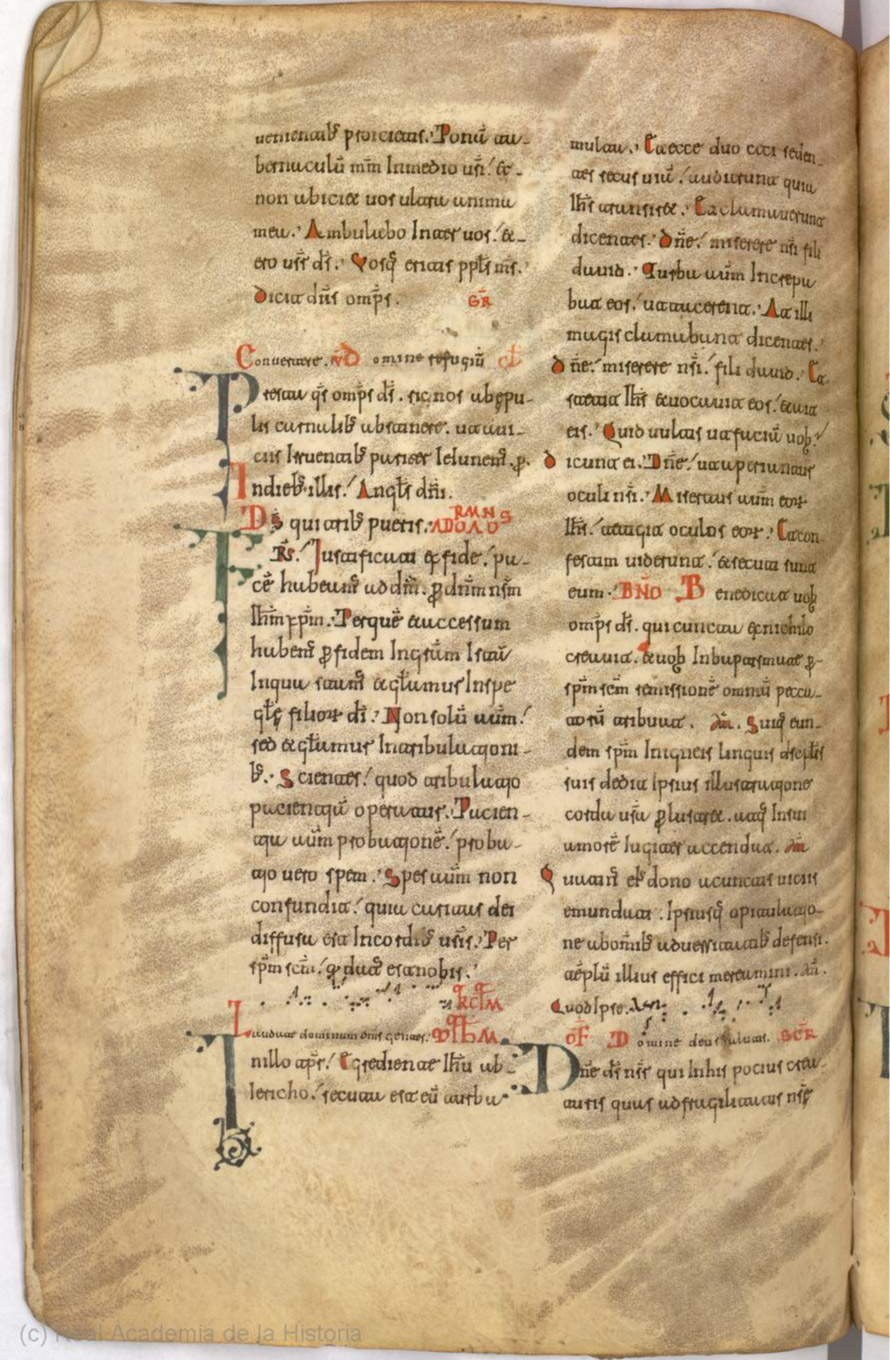 uementib; proiciatis. Ponā ta-
bernaculū mm̄ In medio ur̄i. et-
non abiciet uos ulatu anima
mea. Ambulabo Inter uos. et-
ero ur̄ ds̄. Vosq; eritis ppłs ms̄.
dicit dn̄s omp̄s. GR̄
Conuertere. VD omine refugiū ct
Presta qs̄ omp̄s ds̄. sic nos ab epu-
lis carnalib; abstinere. ut a ui-
ciis Iruentib; pariter Ieiunem;. p.
In dieb; illis. Angłs dn̄i.
Ds̄ qui trib; pueris. AD ROMANOS
FR̄s. Iustificati ex fide. pa-
cē habeam; ad dm̄. p dnm̄ nsm̄
Ihm̄ xpm̄. Per quē et accessum
habem; p fidem In gr̄am Istā
In qua stam; et głamur In spe
głe filior̄ dī. Non solū aūm.
sed et głamur In tribulationi-
b;. Scientes. quod tribulatio
patientiā operatur. Patien-
tia aūm probationē. proba-
tio uero spem. Spes aūm non
confundit. quia caritas dei
diffusa est In cordib; ur̄is. Per
spm̄ scm̄. q datus est nobis.
Laudate dominum omnes gentes.
In illo tp̄r. Egrediente Ihū ab-
Iericho. secuta est eū turba
multa. Et ecce duo ceci seden-
tes secus uiā. audierunt quia
Ihs̄ transiret. Et clamauerunt
dicentes. Dn̄e. miserere nr̄i fili
dauid. Turba aūm Increpa
bat eos. ut tacerent. At illi
magis clamabant dicentes.
dn̄e. miserere nr̄i. fili dauid. Et
stetit Ihs̄ et uocauit eos. et ait
eis. Quid uultis ut faciā uob;.
dicunt ei. Dn̄e. ut aperiantur
oculi nr̄i. Misertus aūm eor̄
Ihs̄. tetigit oculos eor̄. Et con-
festim uiderunt. et secuti sunt
eum. BN̄O Benedicat uob
omp̄s ds̄. qui cuncta ex nichilo
creauit. et uob In baptismate p-
spm̄ scm̄ remissionē omniū pecca-
torū tribuat. Am̄. Quiq; eun-
dem spm̄ In igneis linguis discplis
suis dedit Ipsius illustratione
corda ur̄a plustret. atq; In sui
amorē Iugiter accendat. Am̄
Quatin; ei; dono a cunctis uiciis
emundati. Ipsiusq; opitulatio-
ne ab omīb; aduersitatib; defensi.
templū illius effici mereamini. Am̄.
Quod Ipse.
OF̄ Domine deus salutis. SCR̄
Dn̄e ds̄ nr̄ qui In his pocius crea-
turis quas ad fragilitatis nr̄e
(c) Real Academia de la Historia